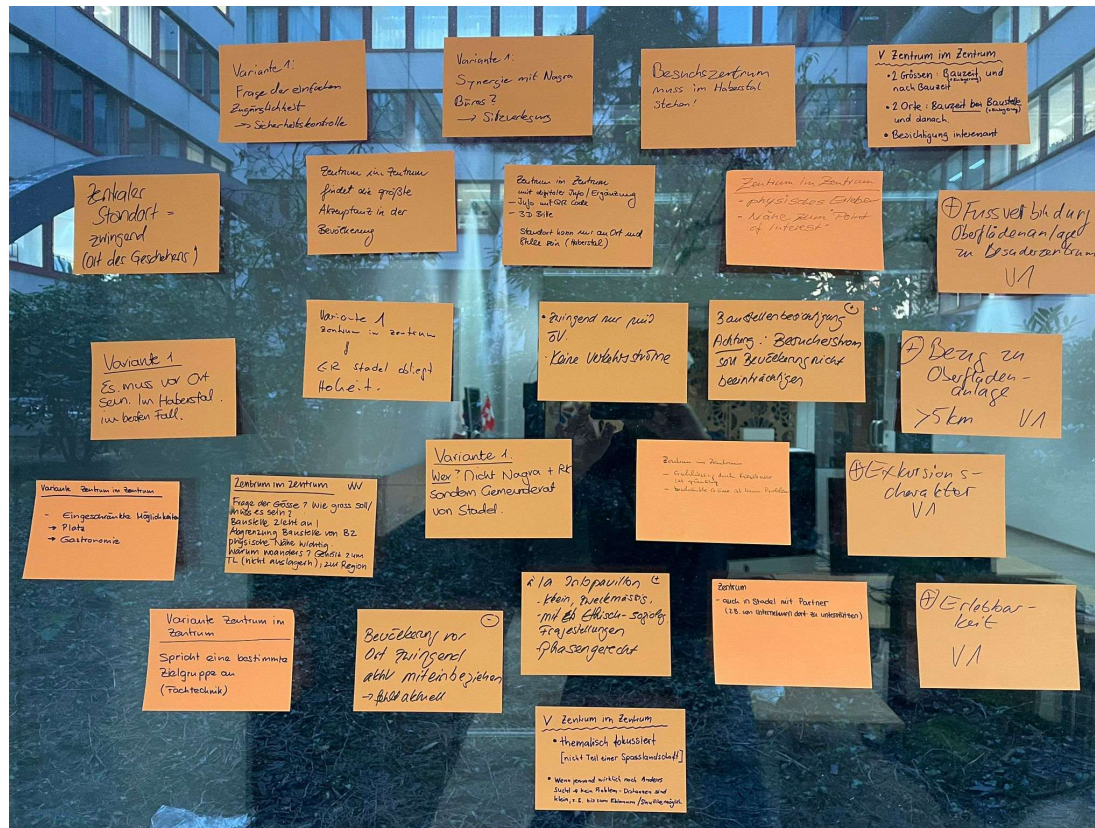 Variante 1:
Frage der einfachen
Zugänglichkeit
→ Sicherheitskontrolle
Variante 1:
Synergie mit Nagra
Büros?
→ Sitzverlegung
Besuchszentrum
muss im Haberstal
stehen!
V Zentrum im Zentrum
• 2 Grössen: Bauzeit und
nach Bauzeit
• 2 Orte: Bauzeit bei Baustelle
und danach
• Besichtigung interessant
Zentraler
Standort =
zwingend
(Ort des Geschehens!)
Zentrum im Zentrum
findet die größte
Akzeptanz in der
Bevölkerung
Zentrum im Zentrum
mit digitaler Info/Ergänzung
- Info mit QR Code
- 3D Bille
Standort kann nur an Ort und
Stelle sein (Haberstal)
Zentrum im Zentrum
- physisches Erleben
- Nähe zum "Point
of Interest"
+ Fussverbindung
Oberflächenanlage
zu Besucherzentrum
V1
Variante 1
Es muss vor Ort
sein. Im Haberstal
im besten Fall.
Variante 1
Zentrum im Zentrum
GR Stadel obliegt
Hoheit.
• Zwingend nur mit
ÖV.
• Keine Verkehrströme
+
Baustellenbesichtigung
Achtung: Besucherstrom
soll Bevölkerung nicht
beeinträchtigen
+ Bezug zu
Oberflächen-
anlage
>5km V1
Variante Zentrum im Zentrum
- Eingeschränkte Möglichkeiten
→ Platz
→ Gastronomie
Zentrum im Zentrum VV
Frage der Gösse? Wie gross soll/
muss es sein?
Baustelle zieht an!
Abgrenzung Baustelle von BZ
physische Nähe wichtig
Warum woanders? Gehört zum
TL (nicht auslagern), zur Region
Variante 1.
Wer? Nicht Nagra + RK
sondern Gemeinderat
von Stadel.
Zentrum im Zentrum
+ Exkursions-
charakter
V1
Variante Zentrum im
Zentrum
Spricht eine bestimmte
Zielgruppe an
(Fachtechnik)
-
Bevölkerung vor
Ort zwingend
aktiv miteinbeziehen
→ fehlt aktuell
à la Infopavillon +
- klein, zweckmässig,
- mit ethisch-soziolog
Fragestellungen
- phasengerecht
Zentrum
- auch in Stadel mit Partner
(z.B. um Unternehmen dort zu unterstützen)
+ Erlebbar-
keit
V1
V Zentrum im Zentrum
• thematisch fokussiert
[nicht Teil einer Spasslandschaft]
• Wenn jemand wirklich noch Anderes
sucht → kein Problem - Distanzen sind
klein, z.B. bis zum